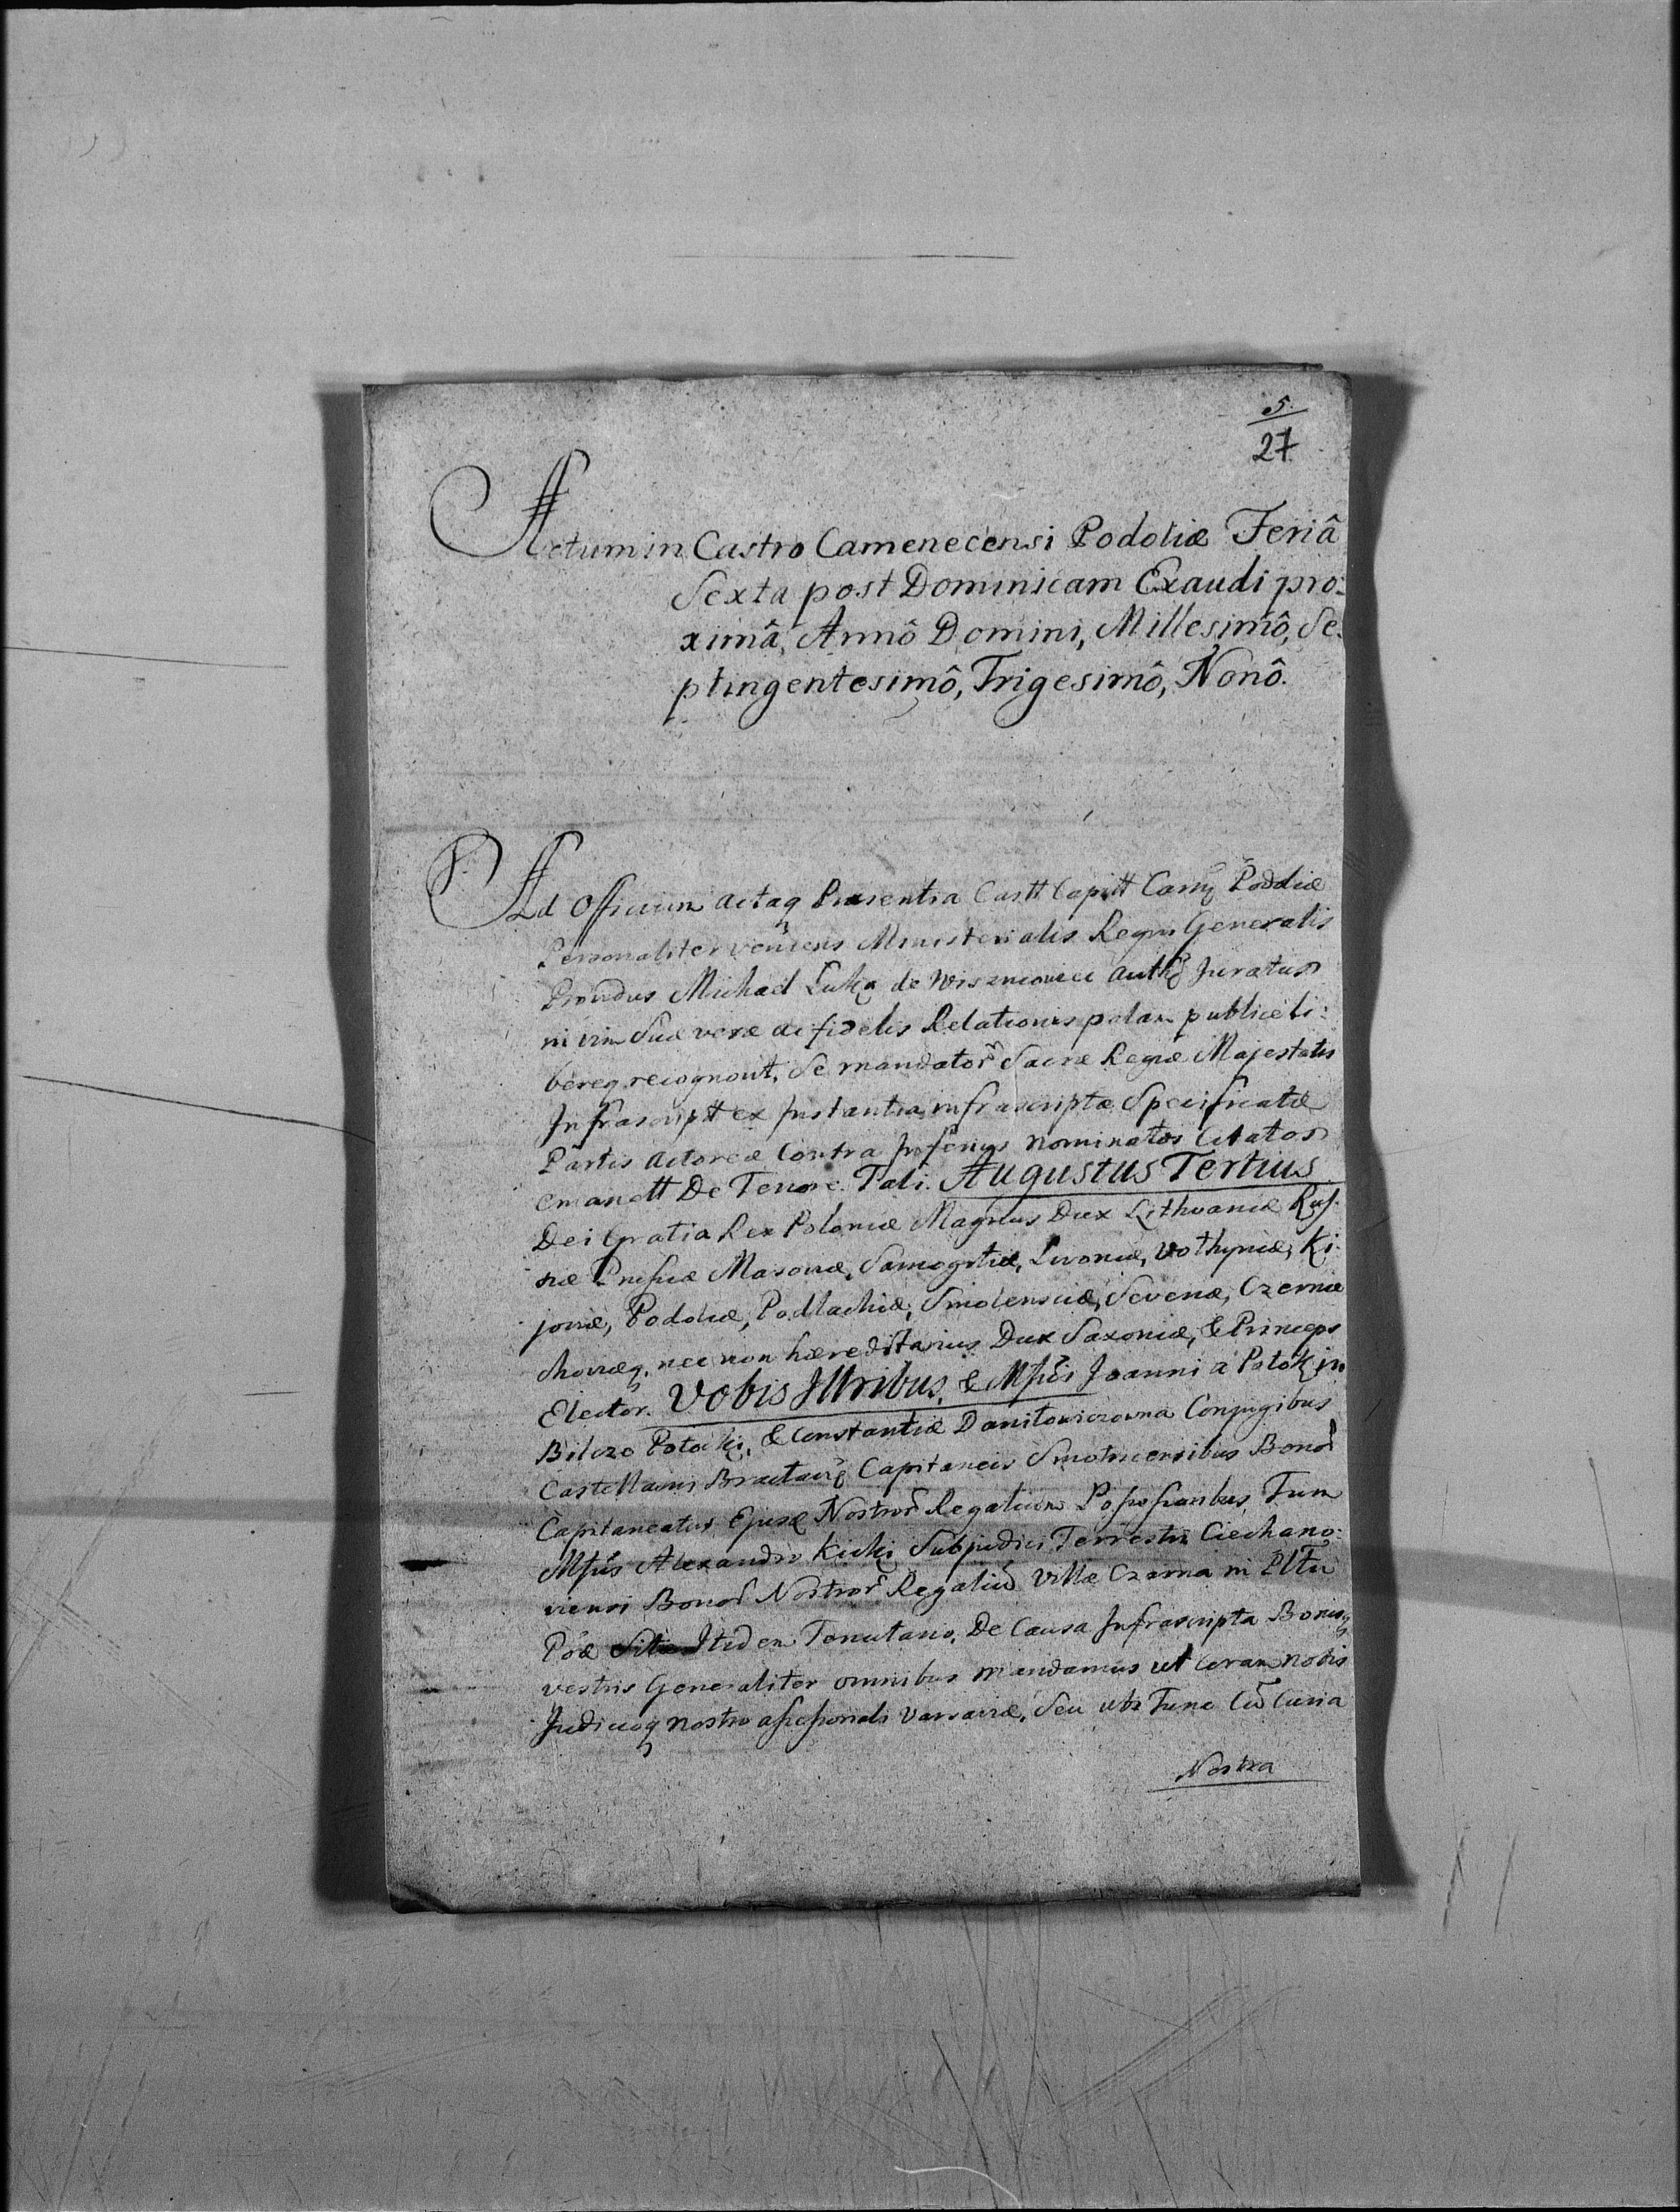 5.
27.
Actum in Castro Camenecensi Podoliæ Feriâ
Sexta post Dominicam Exaudi pro:
ximâ, Annô Domini, Millesimô, Se:
ptingentesimô, Trigesimô, Nonô.
Ad Officium Actaq Præsentia Castt Capitt Camq Podoliæ
Personaliter veniens Ministerialis Regni Generalis
Providus Michael Łuka de Wiszniowice Autħq Juratus
in vim Suæ veræ ac fidelis Relationis palam publice li:
bereq recognovit, Se mandator Sacræ Regiæ Majestatis
Infrascriptt ex Instantia infrascriptæ Specificatæ
Partis Actoreæ Contra Inferius nominatos Citatos
emanatt De Tenore Tali. Augustus Tertius
Dei Gratia Rex Poloniæ Magnus Dux Lithvaniæ Rus:
siæ Prussiæ Masoviæ, Samogitiæ, Livoniæ, Volhyniæ, Ki:
joviæ, Podoliæ, Podlachiæ, Smolensciæ, Severiæ, Czernie
choviæq, nec non hæreditarius Dux Saxoniæ, & Princeps
Elector. Vobis Illribus, & Mfcis Joanni à Potok in
Bilcze Potocki, & Constantiæ Daniłowiczowna Conjugibus
Castellanis Braclavq Capitaneis Smotricensibus Bonor
Capitaneatus Ejusæ Nostror Regalium Possessoribus, Tum
Mfcis Alexandro Kicki Subjudici Terrestri Ciechano:
viensi Bonor Nostror Regaliū Villæ Czarna in Plttu
Pōæ Itidem Tenutario. De Causa Infrascripta Bonisq
vestris Generaliter omnibus mandamus ut Coram nobis
Judicioq nostro assessoriali Varsaviæ, Seu ubi Tunc Cū Curia
Nostra